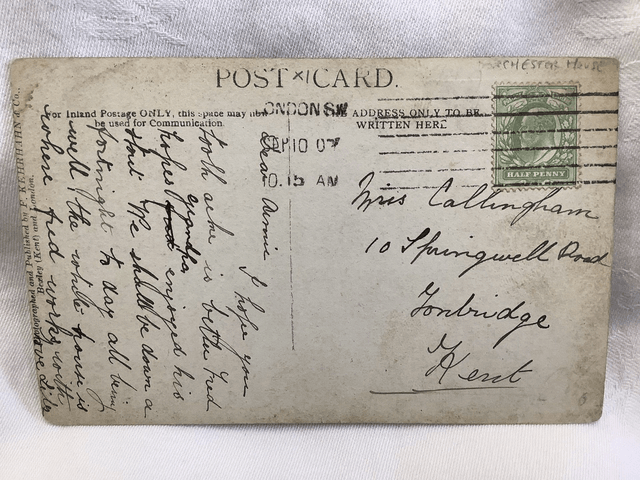 POST CARD.
For Inland Postage ONLY, this space may now
be used for Communication.
ADDRESS ONLY TO BE
WRITTEN HERE
LONDON S.W
10 07
10.15 AM
HALF PENNY
Miss Callingham
10 Springwell Road
Tonbridge
Kent
Dear Annie I hope you
tooth ache is better Fred
hopes grandpa enjoyed his
We shall be down a
fortnight to day all being
well the white house is
where Fred works with
love
and Published by F. KEHRHAHN & Co.,
Bexley (Kent) and London.
HOUSE